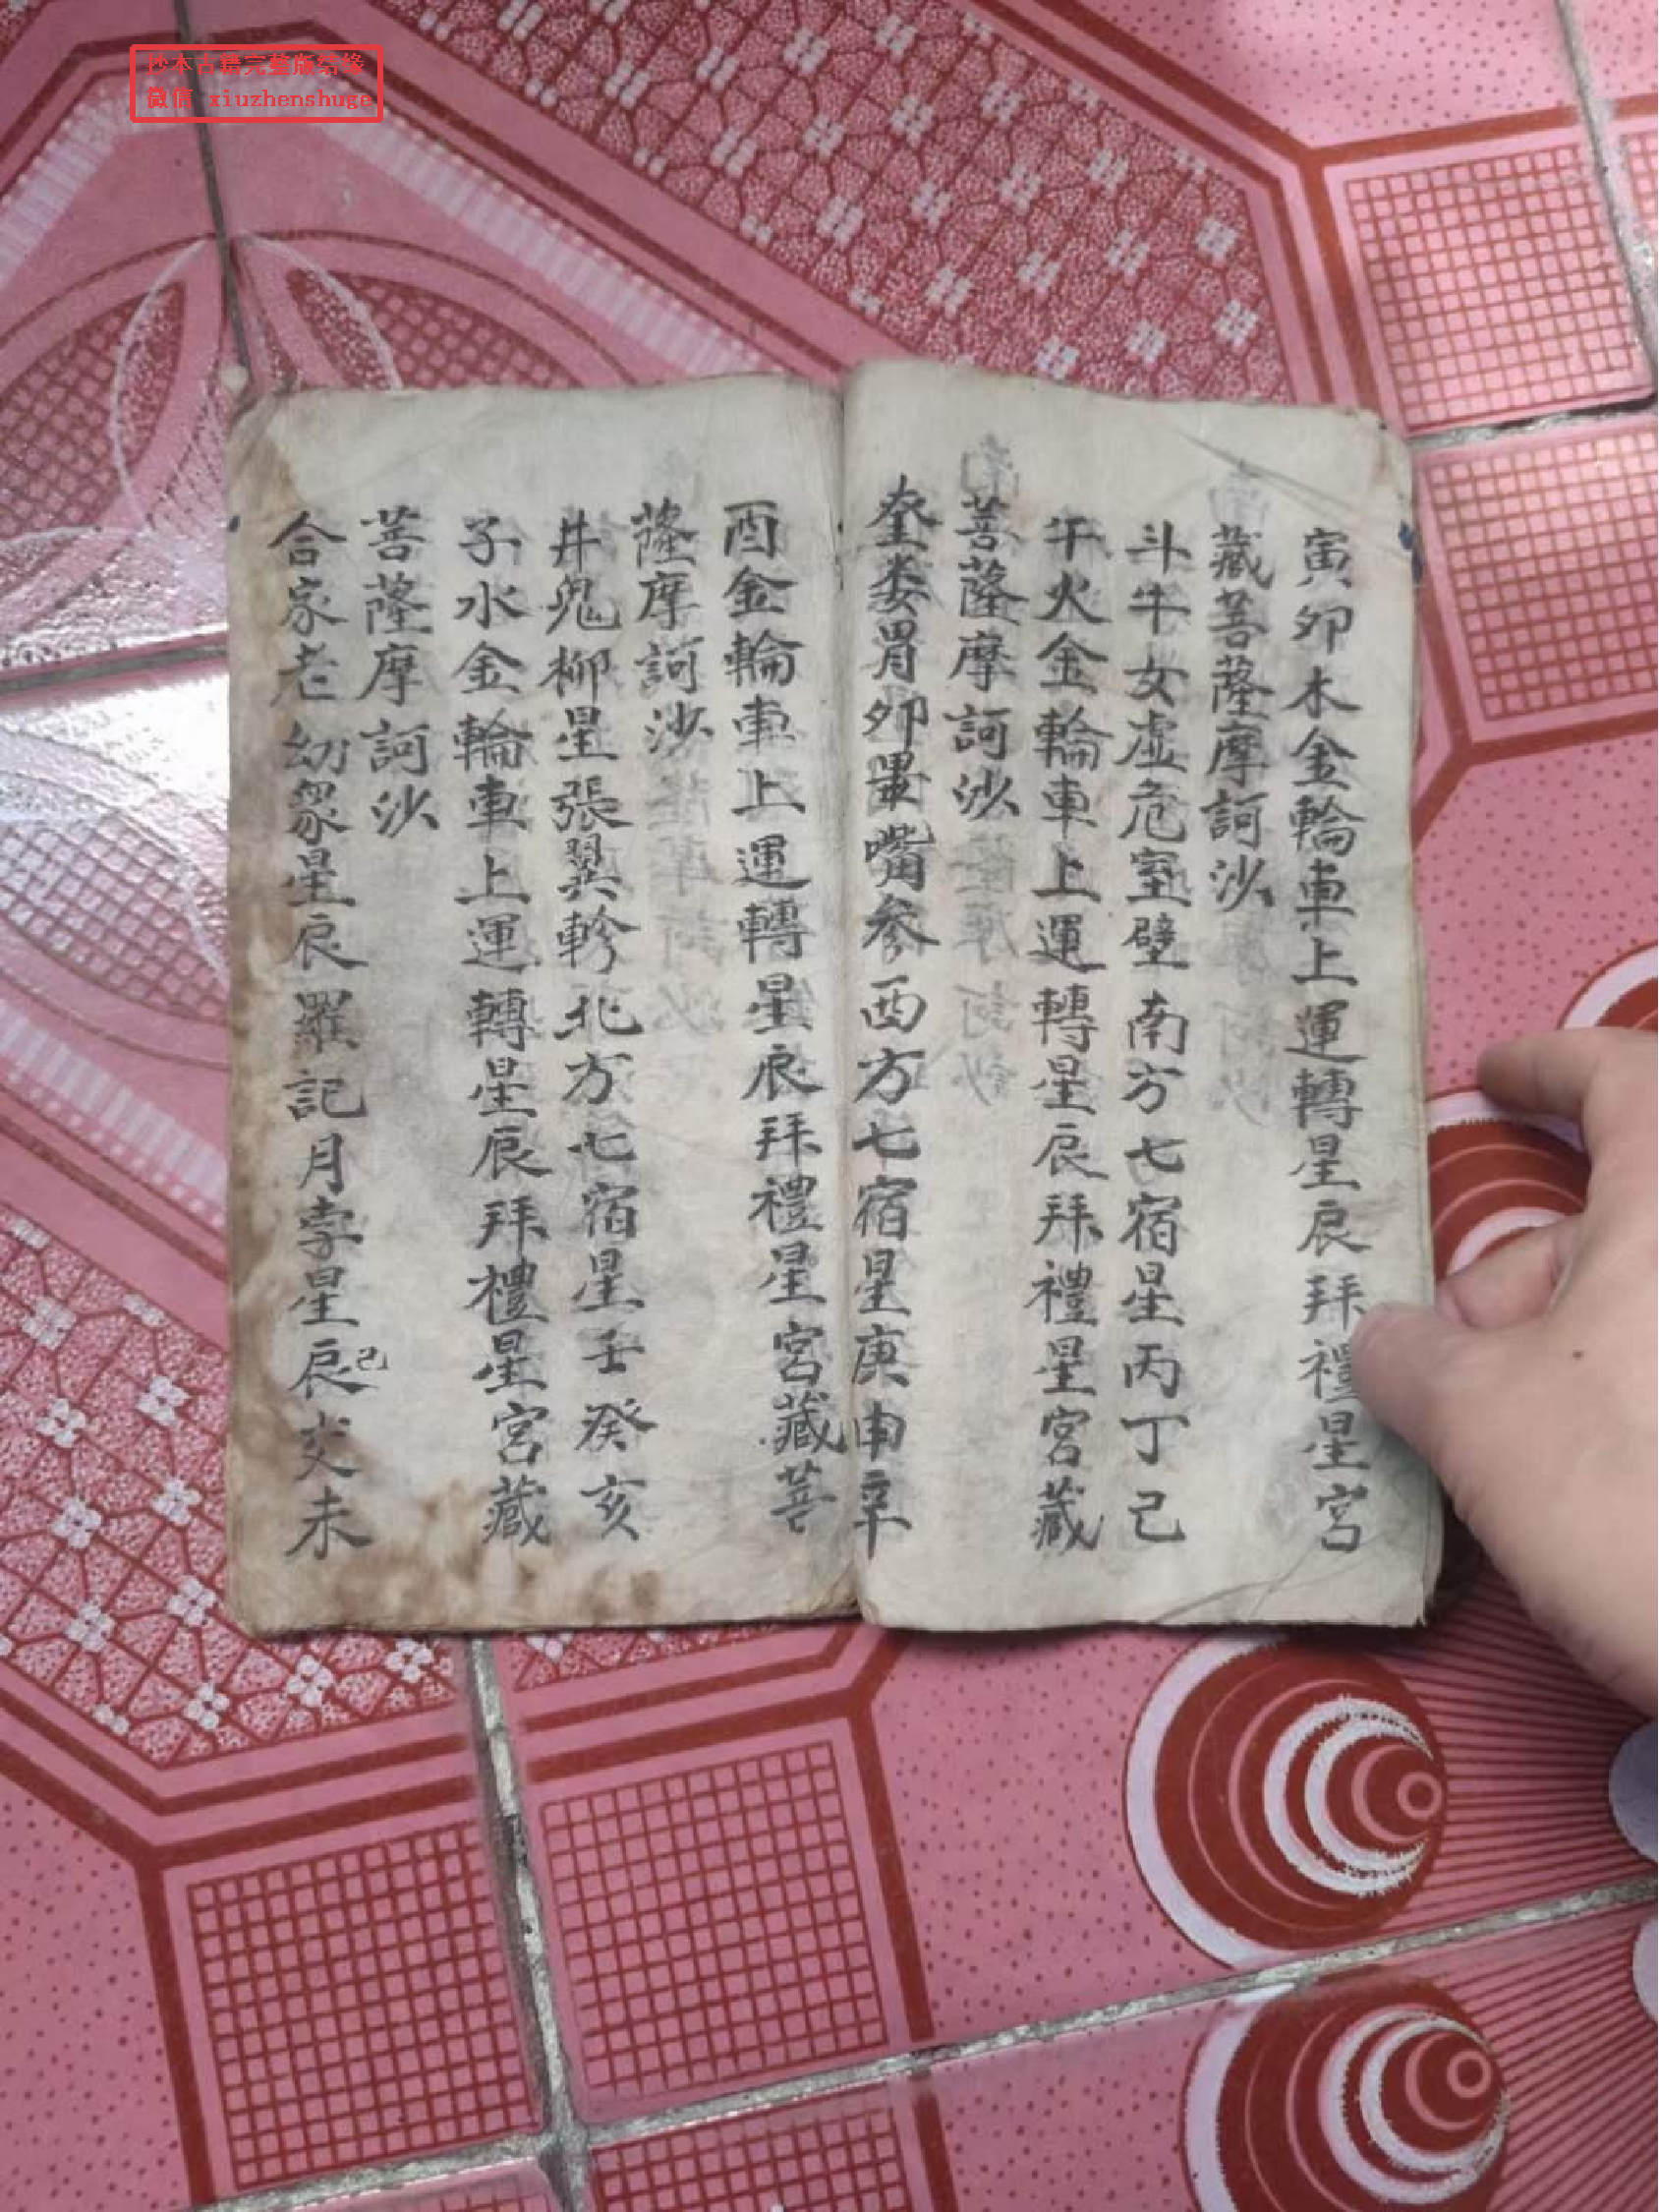 抄本古籍完整版结缘
微信 xiuzhenshuge
寅卯木金輪車上運轉星辰拜禮星宮
藏菩薩摩訶沙
斗牛女虛危室壁南方七宿星丙丁己
午火金輪車上運轉星辰拜禮星宮藏
菩薩摩訶沙
奎娄胃卯畢嘴參西方七宿星庚申辛
酉金輪車上運轉星辰拜禮星宮藏菩
薩摩訶沙
井鬼柳星張翼軫北方七宿星壬癸亥
子水金輪車上運轉星辰拜禮星宮藏
菩薩摩訶沙
合家老幼眾星辰羅記月孛星辰己交未